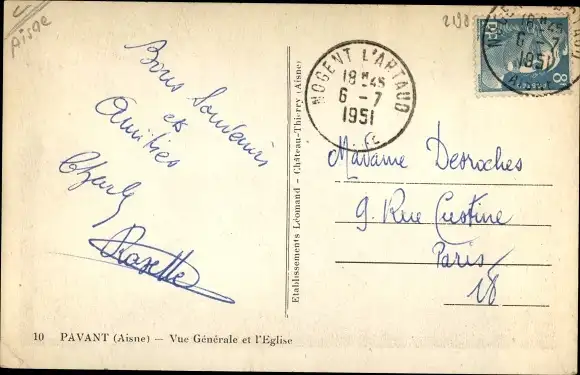 Aisne
2198
NOGENT L'ARTAUD
18 H 45
6 - 7
1951
18 H 45
6 - 7
1951
Bons Souvenirs
et
Amitiés
Charly
Rosette
Madame Desroches
9. Rue Custine
Paris
18
Etablissements Léomand - Château-Thierry (Aisne)
10 PAVANT (Aisne) — Vue Générale et l'Eglise